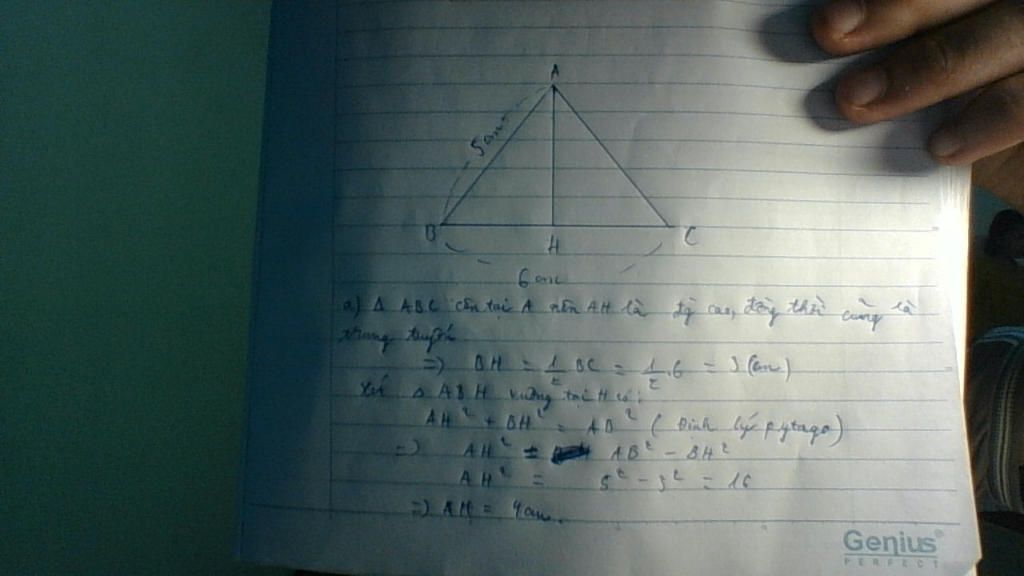 A
5cm
B
H
C
6cm
a) Δ ABC cân tại A nên AH là đg cao, đồng thời cũng là
trung tuyến
=> BH = 1/2 BC = 1/2 . 6 = 3 (cm)
Xét Δ ABH vuông tại H có:
AH² + BH² = AB² (Định lý pytago)
=> AH² = AB² - BH²
AH² = 5² - 3² = 16
=> AH = 4cm.
Genius
PERFECT